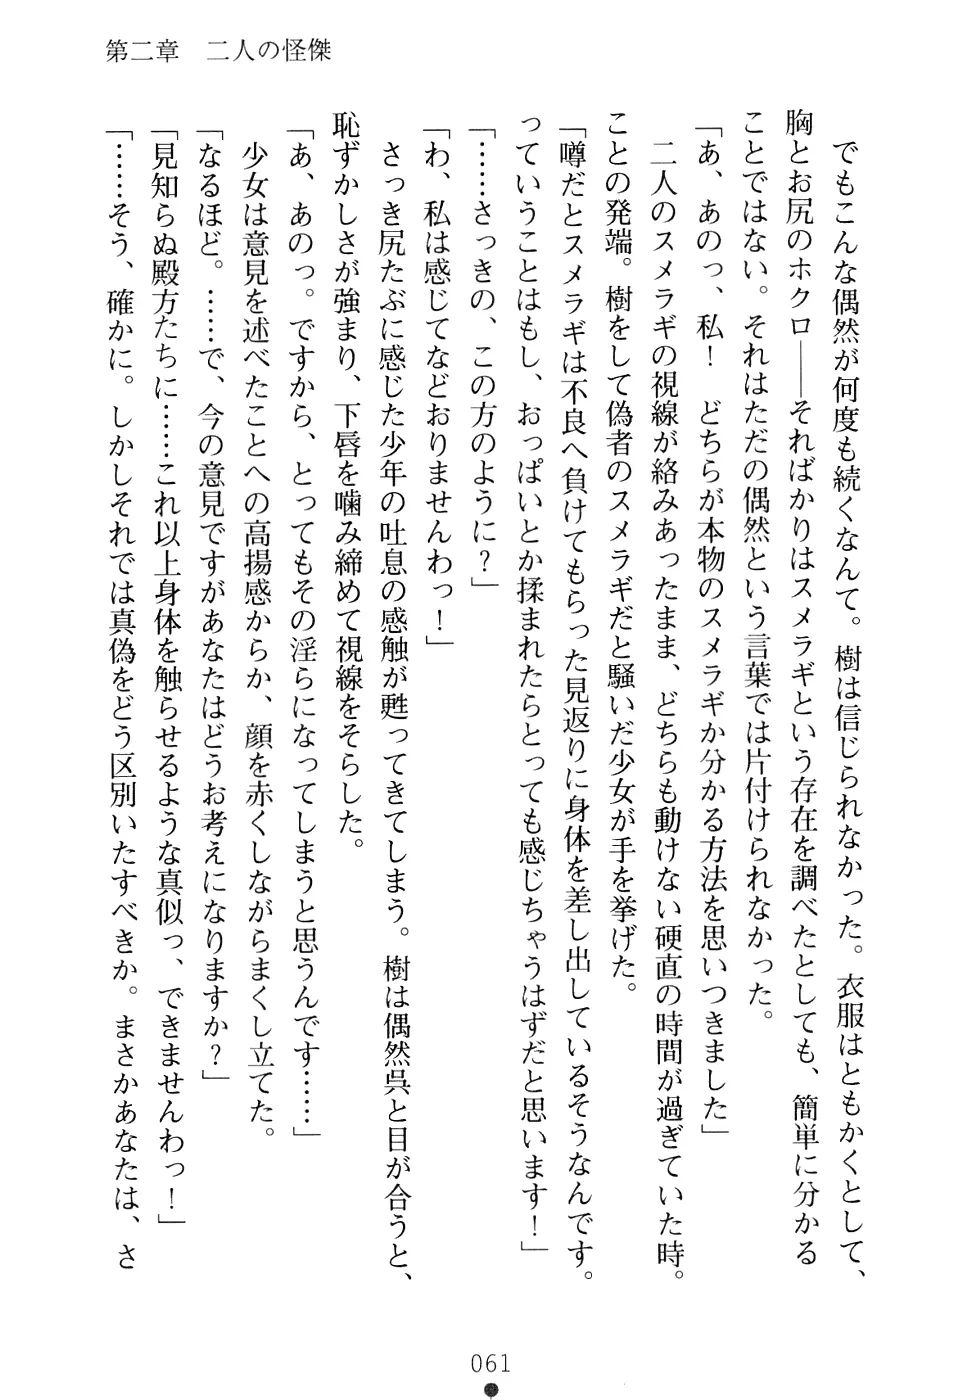 第二章　二人の怪傑
　でもこんな偶然が何度も続くなんて。樹は信じられなかった。衣服はともかくとして、
胸とお尻のホクロ――そればかりはスメラギという存在を調べたとしても、簡単に分かる
ことではない。それはただの偶然という言葉では片付けられなかった。
「あ、あのっ、私！　どちらが本物のスメラギか分かる方法を思いつきました」
　二人のスメラギの視線が絡みあったまま、どちらも動けない硬直の時間が過ぎていた時。
ことの発端。樹をして偽者のスメラギだと騒いだ少女が手を挙げた。
「噂だとスメラギは不良へ負けてもらった見返りに身体を差し出しているそうなんです。
っていうことはもし、おっぱいとか揉まれたらとっても感じちゃうはずだと思います！」
「……さっきの、この方のように？」
「わ、私は感じてなどおりませんわっ！」
　さっき尻たぶに感じた少年の吐息の感触が甦ってきてしまう。樹は偶然呉と目が合うと、
恥ずかしさが強まり、下唇を噛み締めて視線をそらした。
「あ、あのっ。ですから、とってもその淫らになってしまうと思うんです……」
　少女は意見を述べたことへの高揚感からか、顔を赤くしながらまくし立てた。
「なるほど。……で、今の意見ですがあなたはどうお考えになりますか？」
「見知らぬ殿方たちに……これ以上身体を触らせるような真似っ、できませんわっ！」
「……そう、確かに。しかしそれでは真偽をどう区別いたすべきか。まさかあなたは、さ
061